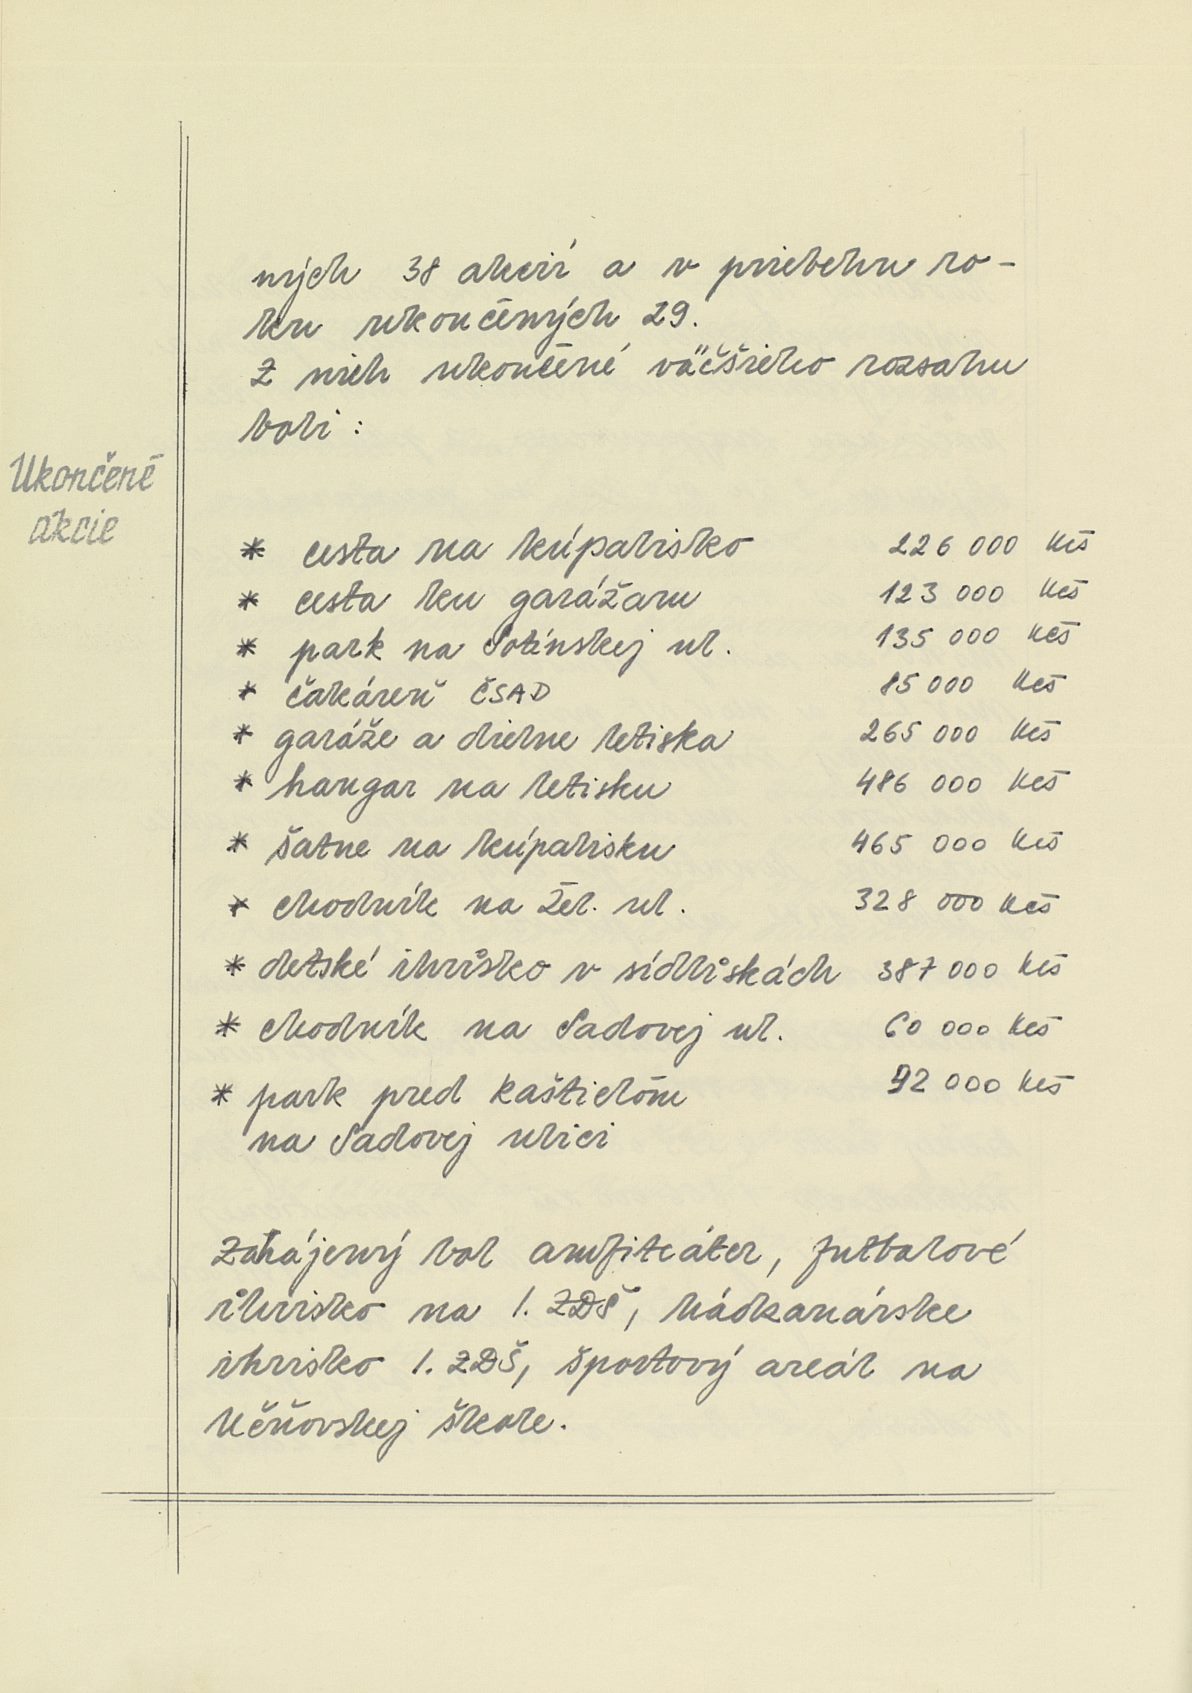 ných 38 akcií a v priebehu ro-
ku ukončených 29.
Z nich ukončené väčšieho rozsahu
boli :
Ukončené
akcie
* cesta na kúpalisko 226 000 Kčs
* cesta ku garážam 123 000 Kčs
* park na Sotinskej ul. 135 000 Kčs
* čakáreň ČSAD 85 000 Kčs
* garáže a dielne letiska 265 000 Kčs
* hangar na letisku 486 000 Kčs
* šatne na kúpalisku 465 000 Kčs
* chodník na Žel. ul. 328 000 Kčs
* detské ihrisko v sídliskách 387 000 Kčs
* chodník na Sadovej ul. 60 000 Kčs
* park pred kaštieľom 92 000 Kčs
na Sadovej ulici
Zahájený bol amfiteáter, futbalové
ihrisko na 1. ZDŠ, hádzanárske
ihrisko 1. ZDŠ, športový areál na
Učňovskej škole.